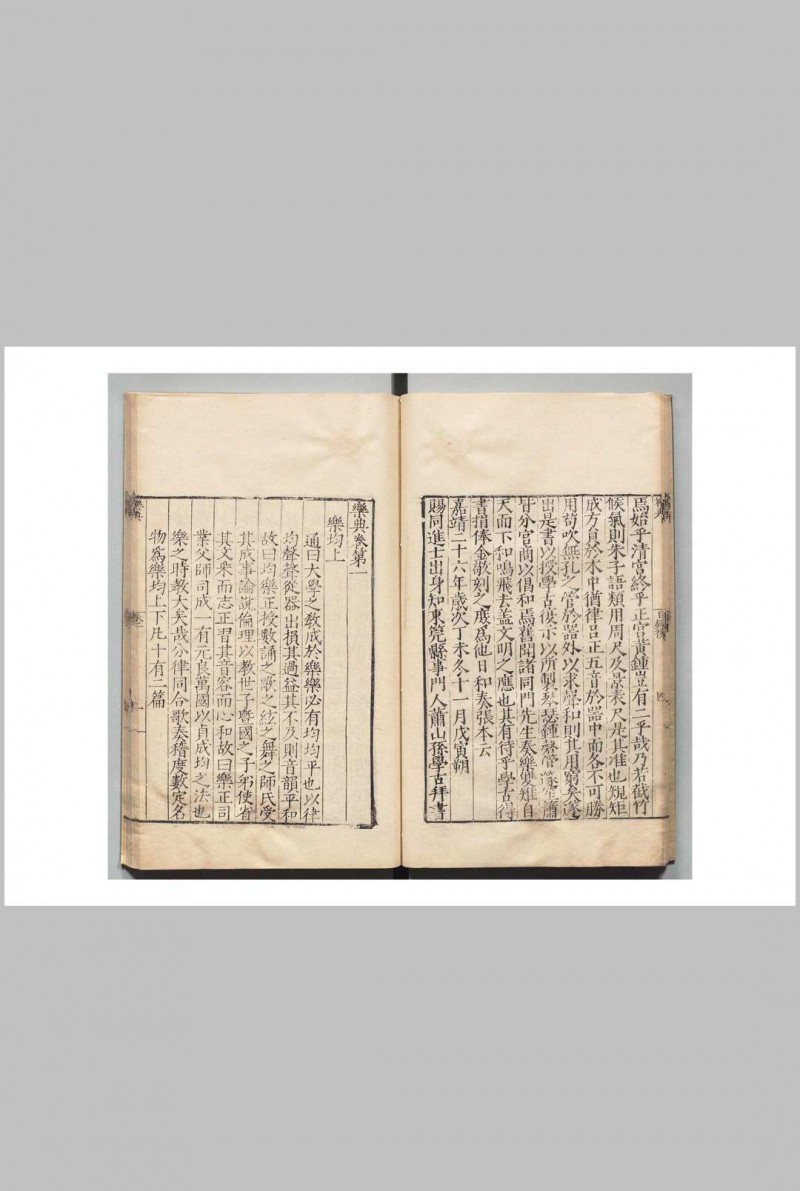 焉始乎清宮終乎正宮黃鍾豈有二乎哉乃若截竹
候氣則朱子語類用周尺及景表尺是其准也規矩
成方員於木中猶律呂正五音於器中而各不可勝
用苟吹無孔之管於器外以求聲和則其用窮矣遂
出是書以授學古復示以所製琴瑟鍾磬管簫
皆分宮商以倡和焉舊聞諸同門先生奏樂雙雉自
天而下和鳴飛去蓋文明之應也其有待乎學古得
書捐俸金敬刻之庶為他日和奏張本云
嘉靖二十六年歲次丁未冬十一月戊寅朔
賜同進士出身知東莞縣事門人蕭山孫學古拜書
樂典卷第一
樂均上
通曰大學之教成於樂樂必有均均平也以律
均聲聲從器出損其過益其不及則音韻平和
故曰均樂正授數誦之歌之絃之舞之師氏受
其成事論說倫理以教世子暨國之子弟使省
其文采而志正習其音容而心和故曰樂正司
業父師司成一有元良萬國以貞成均之法也
樂之時教大矣哉分律同合歌奏稽度數定名
物為樂均上下凡十有二篇
樂典
卷一
一